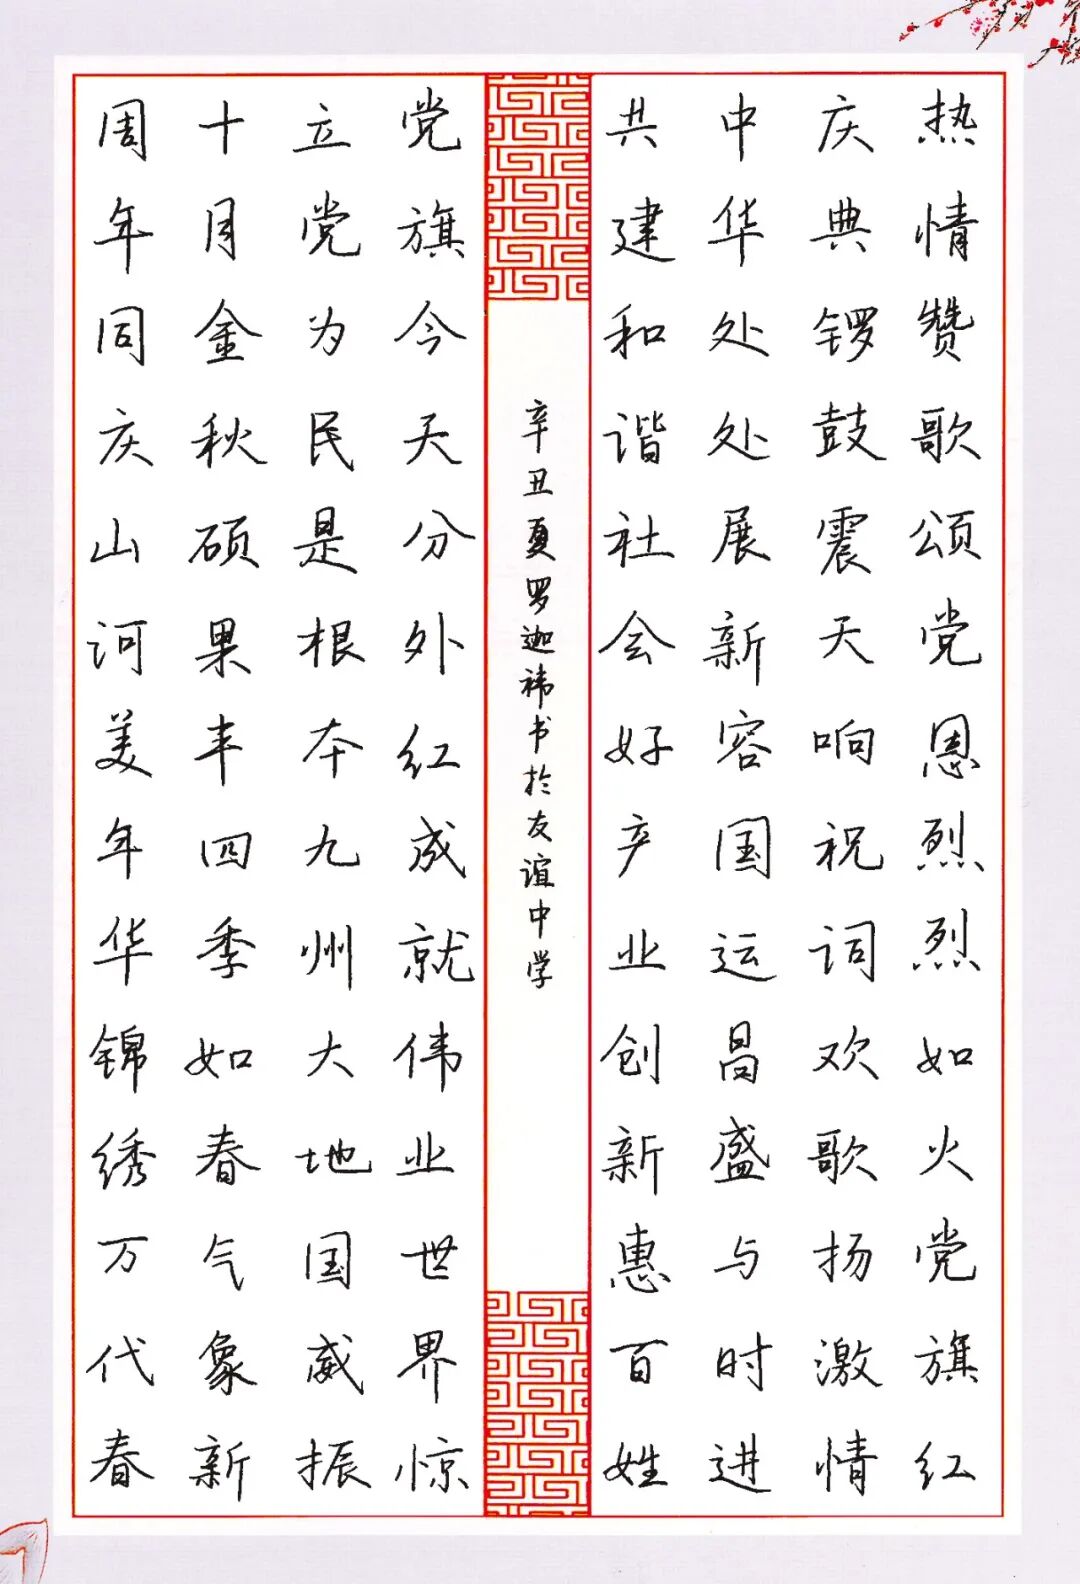 热情赞歌颂党恩烈烈如火党旗红
庆典锣鼓震天响祝词欢歌扬激情
中华处处展新容国运昌盛与时进
共建和谐社会好产业创新惠百姓
辛丑夏罗迦祎书于友谊中学
党旗今天分外红成就伟业世界惊
立党为民是根本九州大地国威振
十月金秋硕果丰四季如春气象新
周年同庆山河美年华锦绣万代春